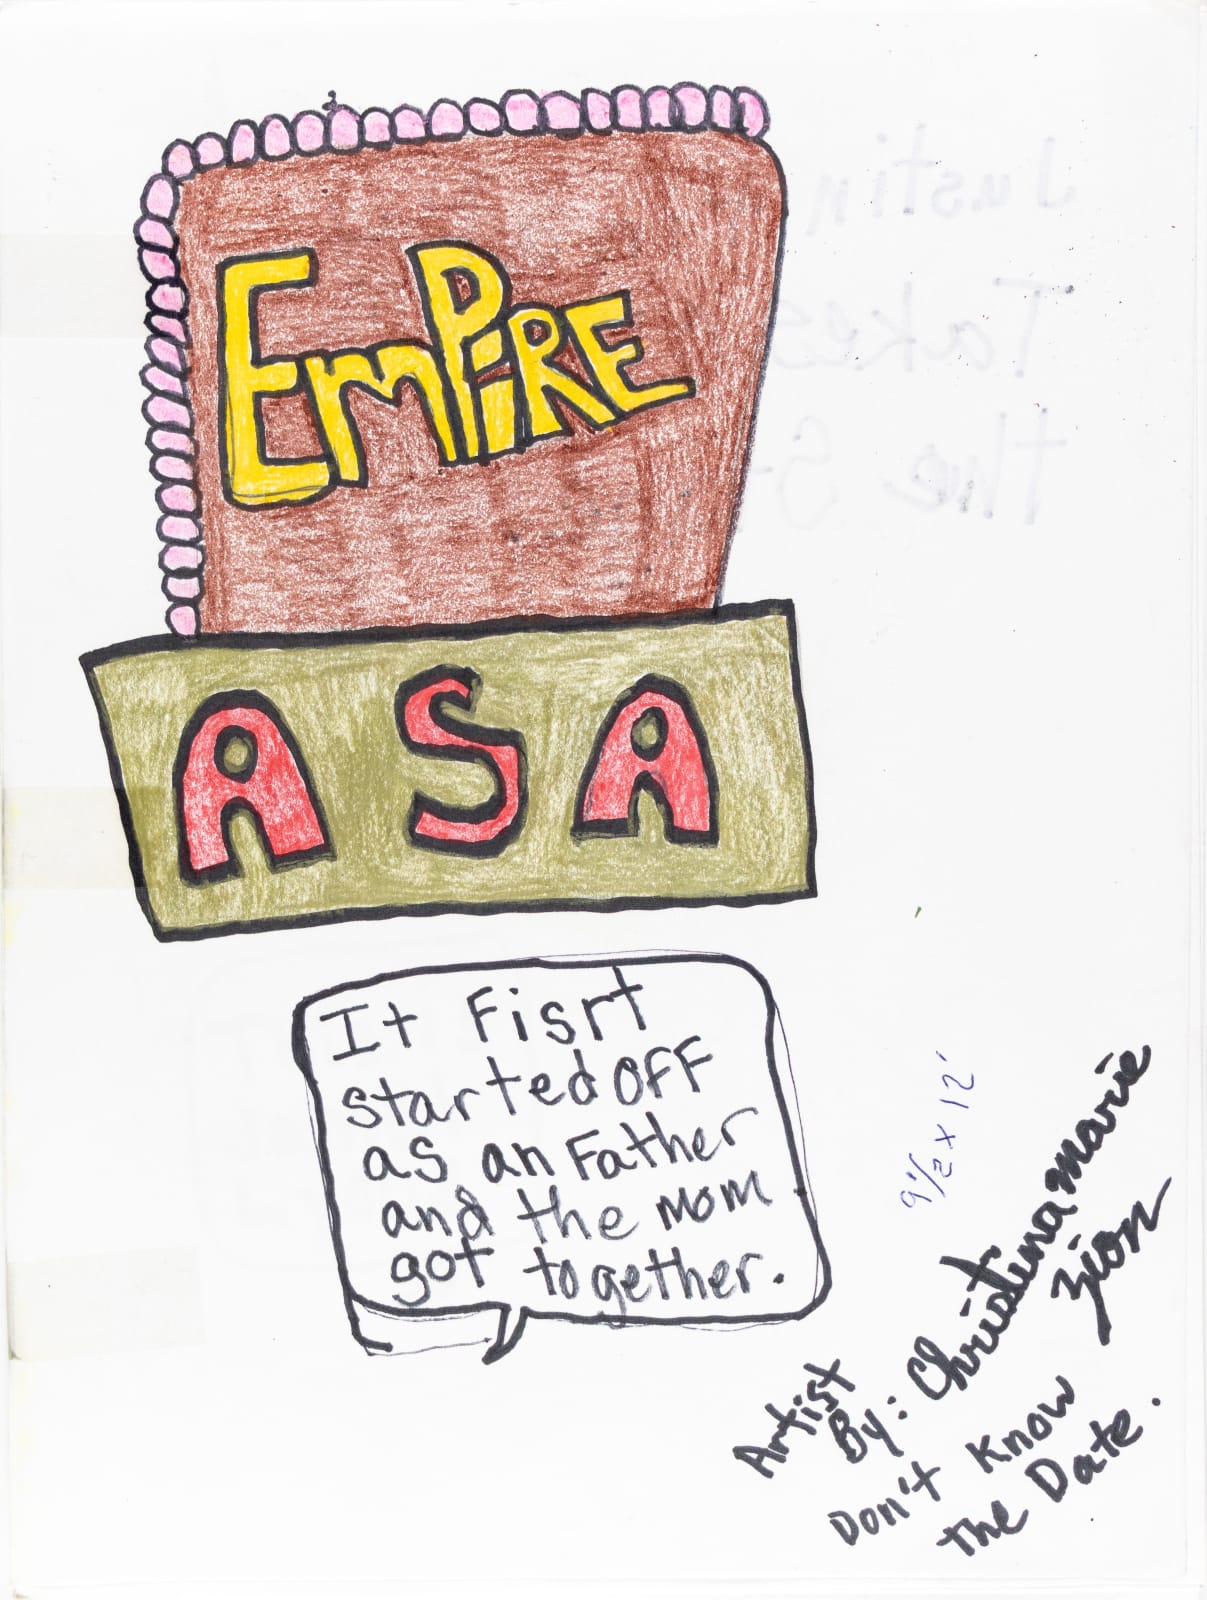 EmPiRE
ASA
It Fisrt
started OFF
as an Father
and the mom
got together.
9 1/2 x 12'
Artist
By: Christina marie
zion
Don't know
the Date.
Justin
Takes
the S